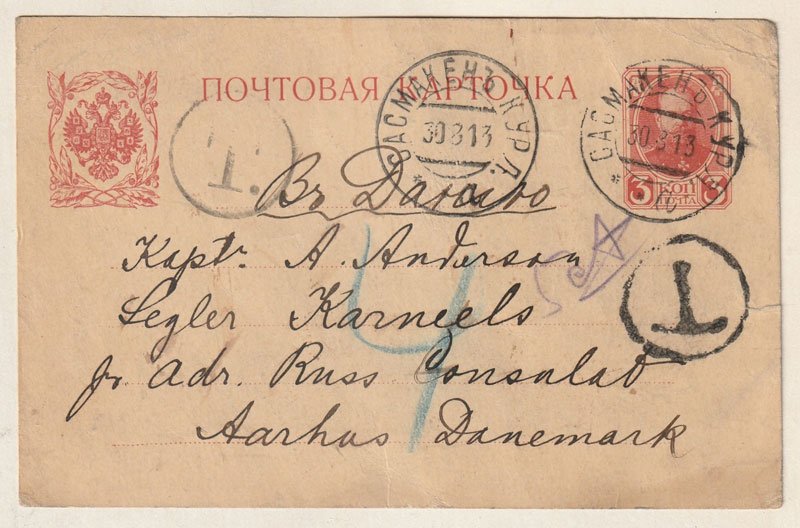 ПОЧТОВАЯ КАРТОЧКА
САСМАКЕНЪ КУРЛ.
30 3 13
САСМАКЕНЪ КУРЛ.
30 3 13
3 КОП 3
ПОЧТА
T.
T
Въ Данию
4
Kaptn A. Anderson
Segler Karneels
pr adr. Russ Consulat
Aarhus Danemark